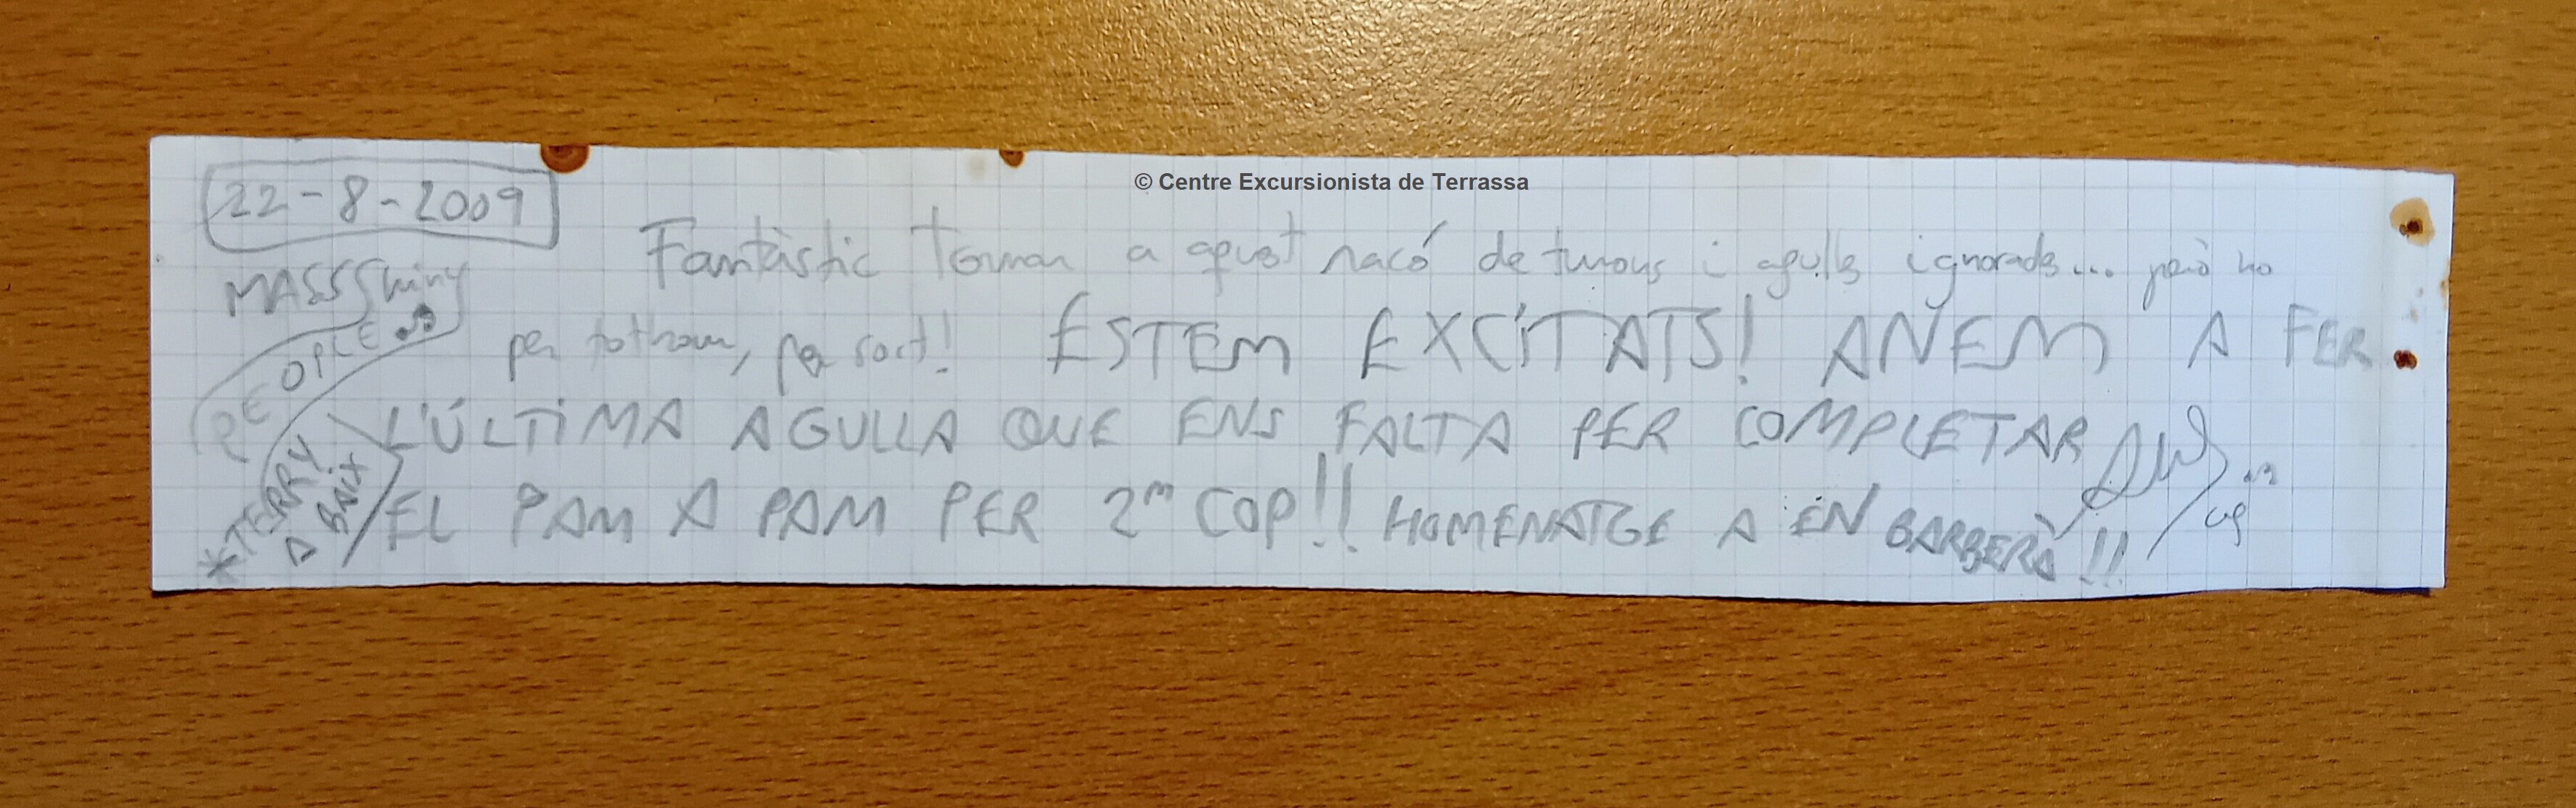 © Centre Excursionista de Terrassa
22-8-2009
MASSShiny
PEOPLE
*TERRY
A BAIX
Fantàstic tornar a aquest racó de turons i agulles ignorades... però no
per tothom, per sort! ESTEM EXCITATS! ANEM A FER
L'ÚLTIMA AGULLA QUE ENS FALTA PER COMPLETAR
EL PAM A PAM PER 2ⁿ COP!! HOMENATGE A EN BARBERÀ!!